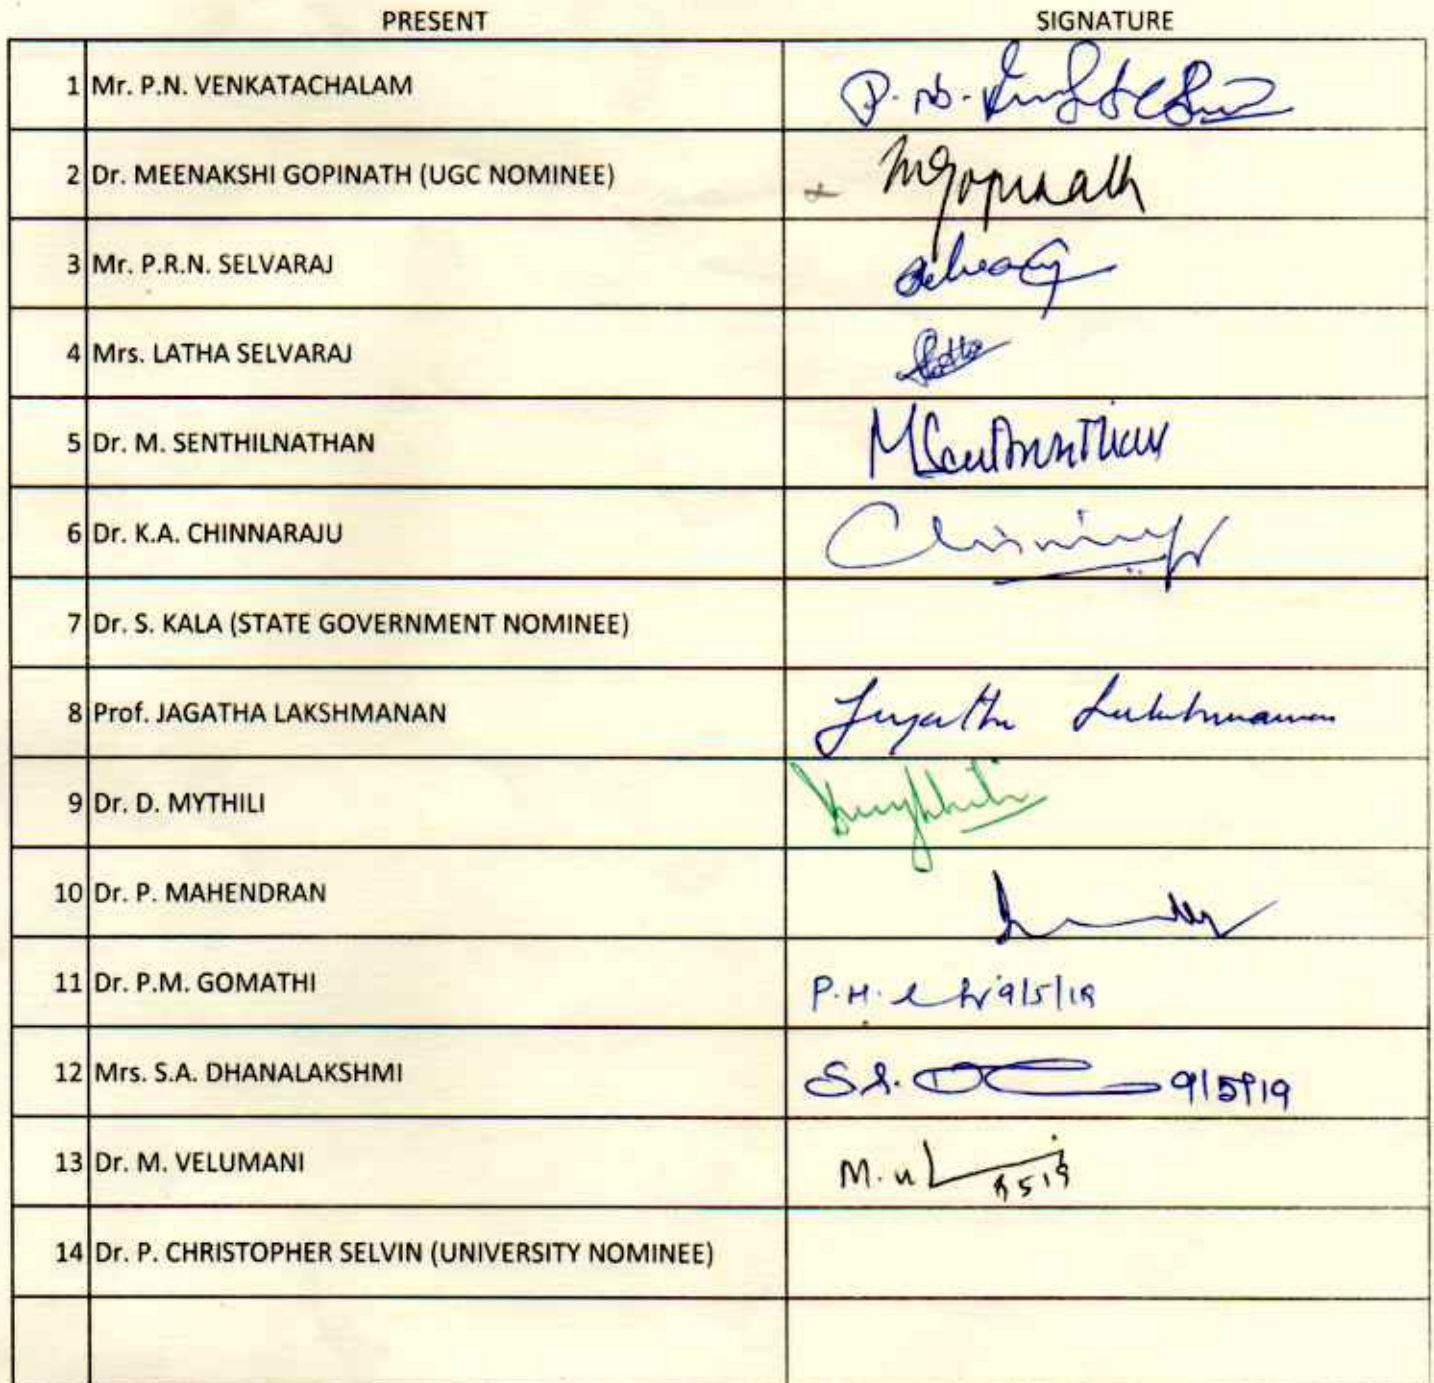 PRESENT SIGNATURE
1 Mr. P.N. VENKATACHALAM P. N.
2 Dr. MEENAKSHI GOPINATH (UGC NOMINEE) MGopinath
3 Mr. P.R.N. SELVARAJ
4 Mrs. LATHA SELVARAJ Latha
5 Dr. M. SENTHILNATHAN MSenthilnathan
6 Dr. K.A. CHINNARAJU
7 Dr. S. KALA (STATE GOVERNMENT NOMINEE)
8 Prof. JAGATHA LAKSHMANAN Jagatha Lakshmanan
9 Dr. D. MYTHILI Dmythili
10 Dr. P. MAHENDRAN
11 Dr. P.M. GOMATHI P.M. 9/5/19
12 Mrs. S.A. DHANALAKSHMI S.A. 9/5/19
13 Dr. M. VELUMANI M.
14 Dr. P. CHRISTOPHER SELVIN (UNIVERSITY NOMINEE)